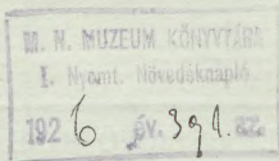 M. N. MUZEUM KÖNYVTÁRA
I. Nyomt. Növedéknapló
1926 év. 391. sz.